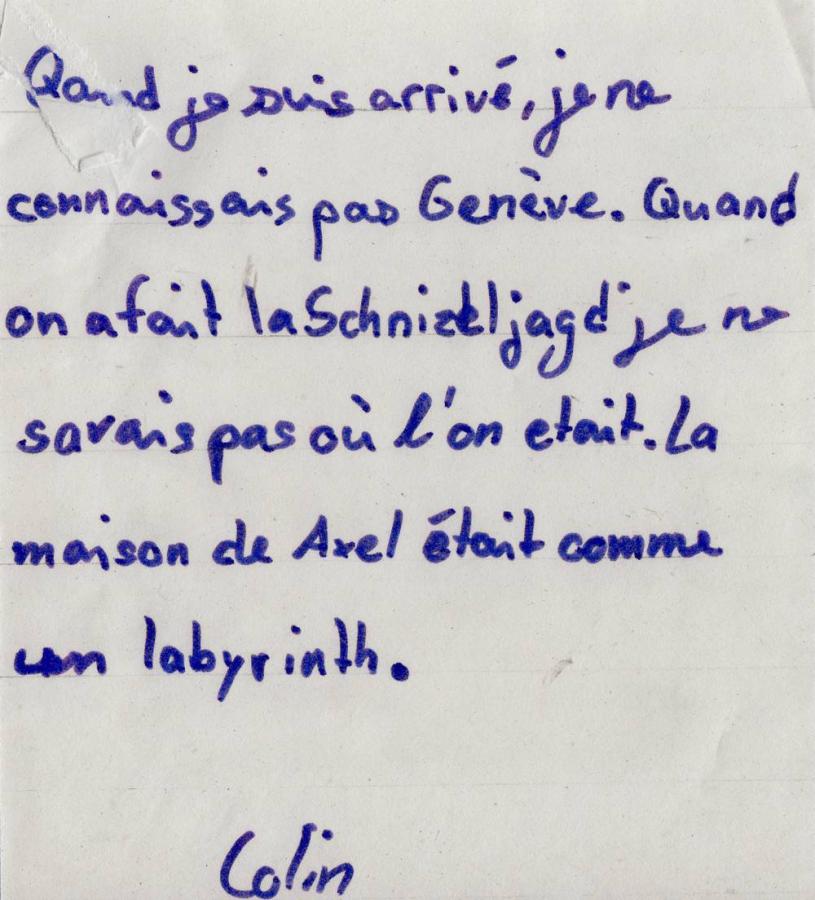 Quand je suis arrivé, je ne
connaissais pas Genève. Quand
on a fait la Schnizeljagd je ne
savais pas où l'on etait. La
maison de Axel était comme
un labyrinth.
Colin